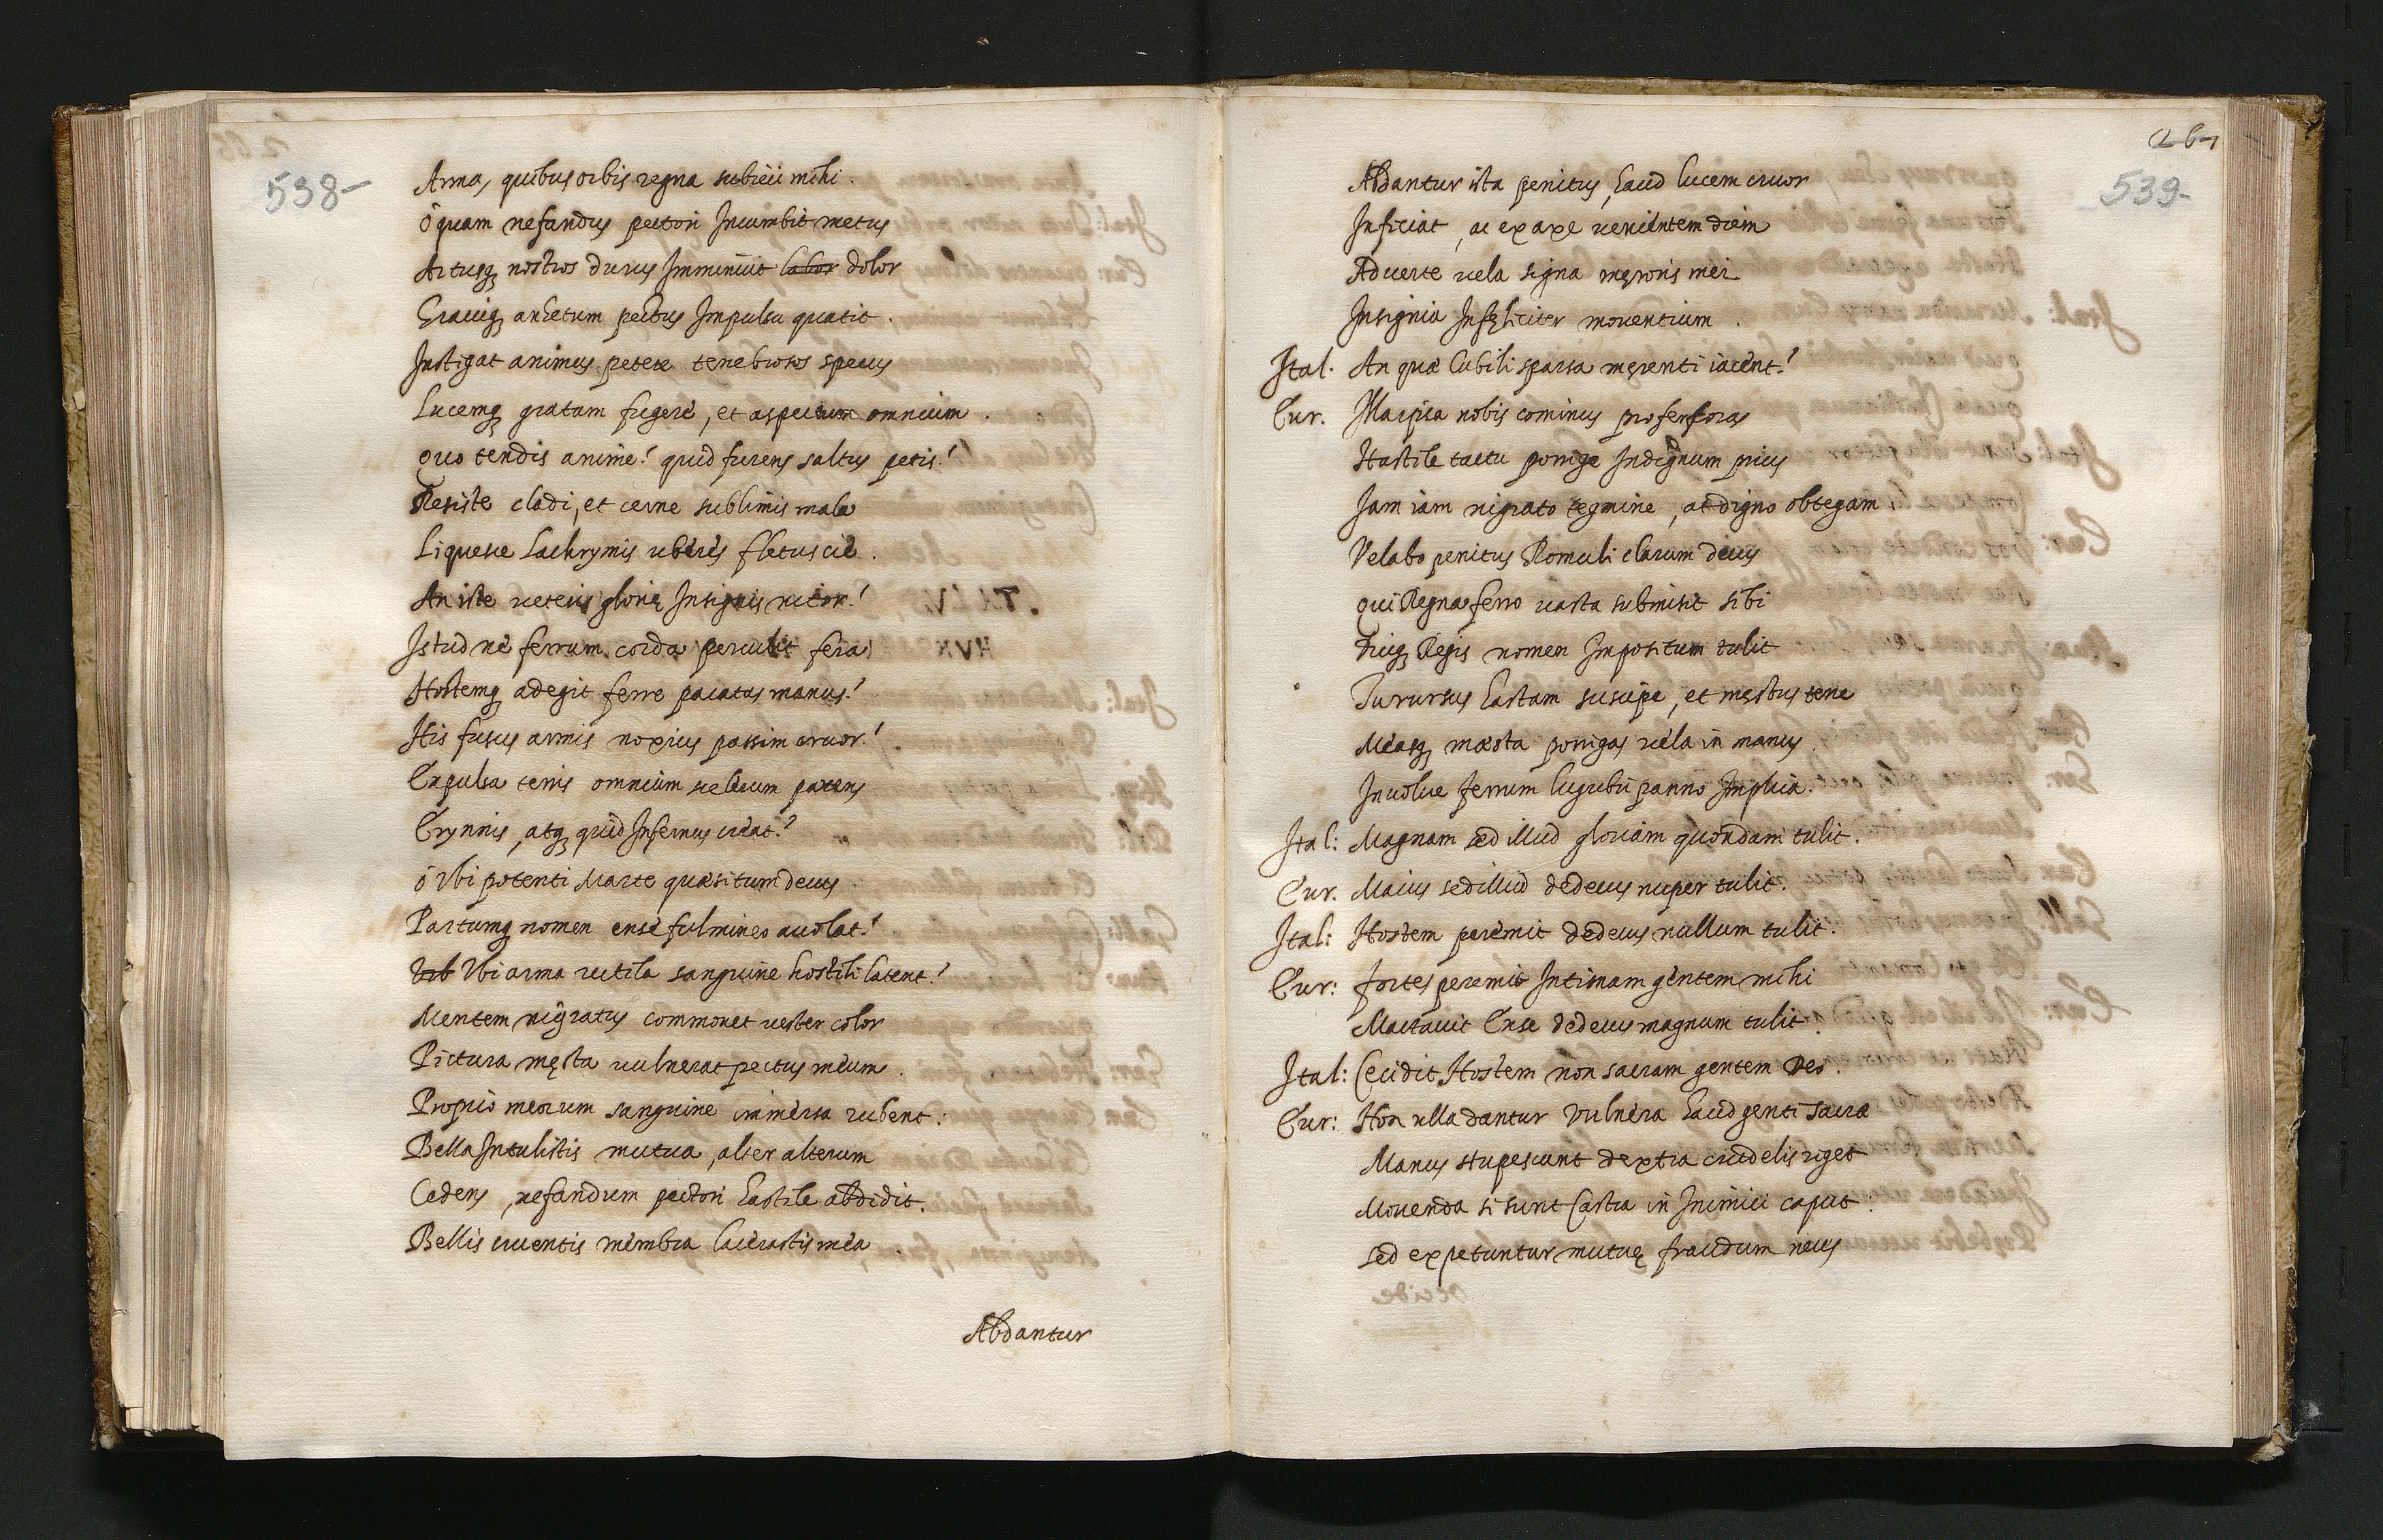 538-
Arma, quibus orbis regna subieci mihi.
ó quam nefandus pectori Incumbit metus
Artusq; nostros durus Imminuit labor dolor
Grauiq; anhelum pectus Impulsu quatit.
Instigat animus petere tenebrosos specus
Lucemq; gratam fugere, et aspectum omnium.
Quo tendis anime! quid furens saltus petis!
Resiste cladi, et cerne sublimis mala
Liquesce Lachrymis uberes fletus cie.
An iste ueteris glorię Insignis nitor!
Istud ne ferrum corda perculit fera
Hostemq; adegit ferre pacatas manus!
His fusus armis noxius passim cruor!
Expulsa terris omnium scelerum parens
Erynnis, atq; quid Infernus creat!
ó Vbi potenti Marte quæsitum decus
Partumq; nomen ense fulmineo auolat!
Vub Vbi arma rutila sanguine hostili latent!
Mentem nigratus commouet uester color
Pictura męsta uulnerat pectus meum.
Proprio meorum sanguine immersa rubent:
Bella Intulistis mutua, alter alterum
Cedens, nefandum pectori hastile abdidit.
Bellis cruentis membra lacerastis mea.
Abdantur
267
539-
Abdantur ista penitus, haud lucem cruor
Inficiat, ac ex axe uenientem diem
Aduerte uela signa męroris mei
Insignia Infęliciter mouentium.
Ital. An quæ Cubili sparsa męrenti iacent!
Eur. Marpia nobis cominus profer foras
Hastile tactu porrige Indignum prius
Iam iam nigrato tegmine, at digno obtegam
Velabo penitus Romuli clarum decus
Qui Regna ferro uasta submisit sibi
Hicq; Regis nomen Impositum tulit
Tu rursus hastam suscipe, et męstus tene
Measq; mæsta porrigas uela in manus.
Inuolue ferrum lugubri panno Implica.
Ital: Magnam sed illud gloriam quondam tulit.
Eur. Maius sed illud dedecus nuper tulit.
Ital: Hostem peremit dedecus nullum tulit.
Eur: fortes peremit Intimam gentem mihi
Mactauit Ense dedecus magnum tulit.
Ital: Cecidit Hostem non sacram gentem Deo.
Eur: Hon ulla dantur Vulnera haud genti sacræ
Manus stupescunt dextra crudelis riget
Mouenda si sunt Castra in Inimici caput:
Sed expetuntur mutuę fraudum neces